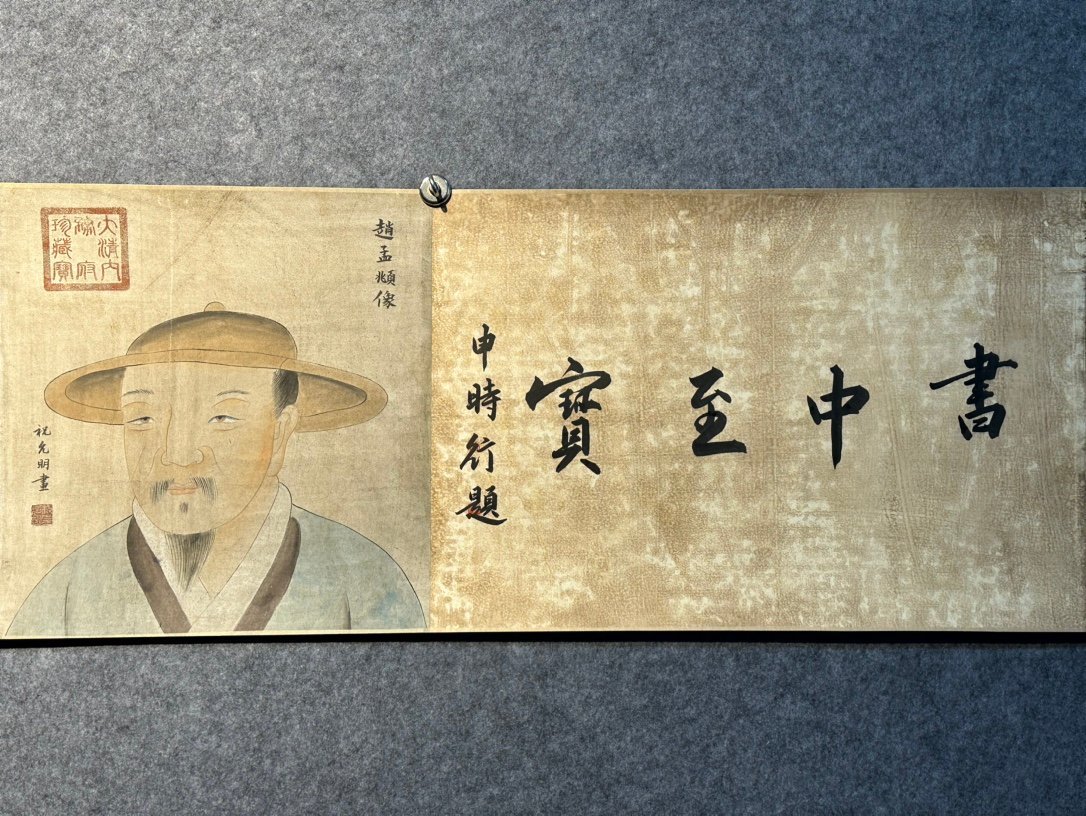 書中至寳
申時行題
趙孟頫像
大清內
務府
珍藏寶
祝允明畫